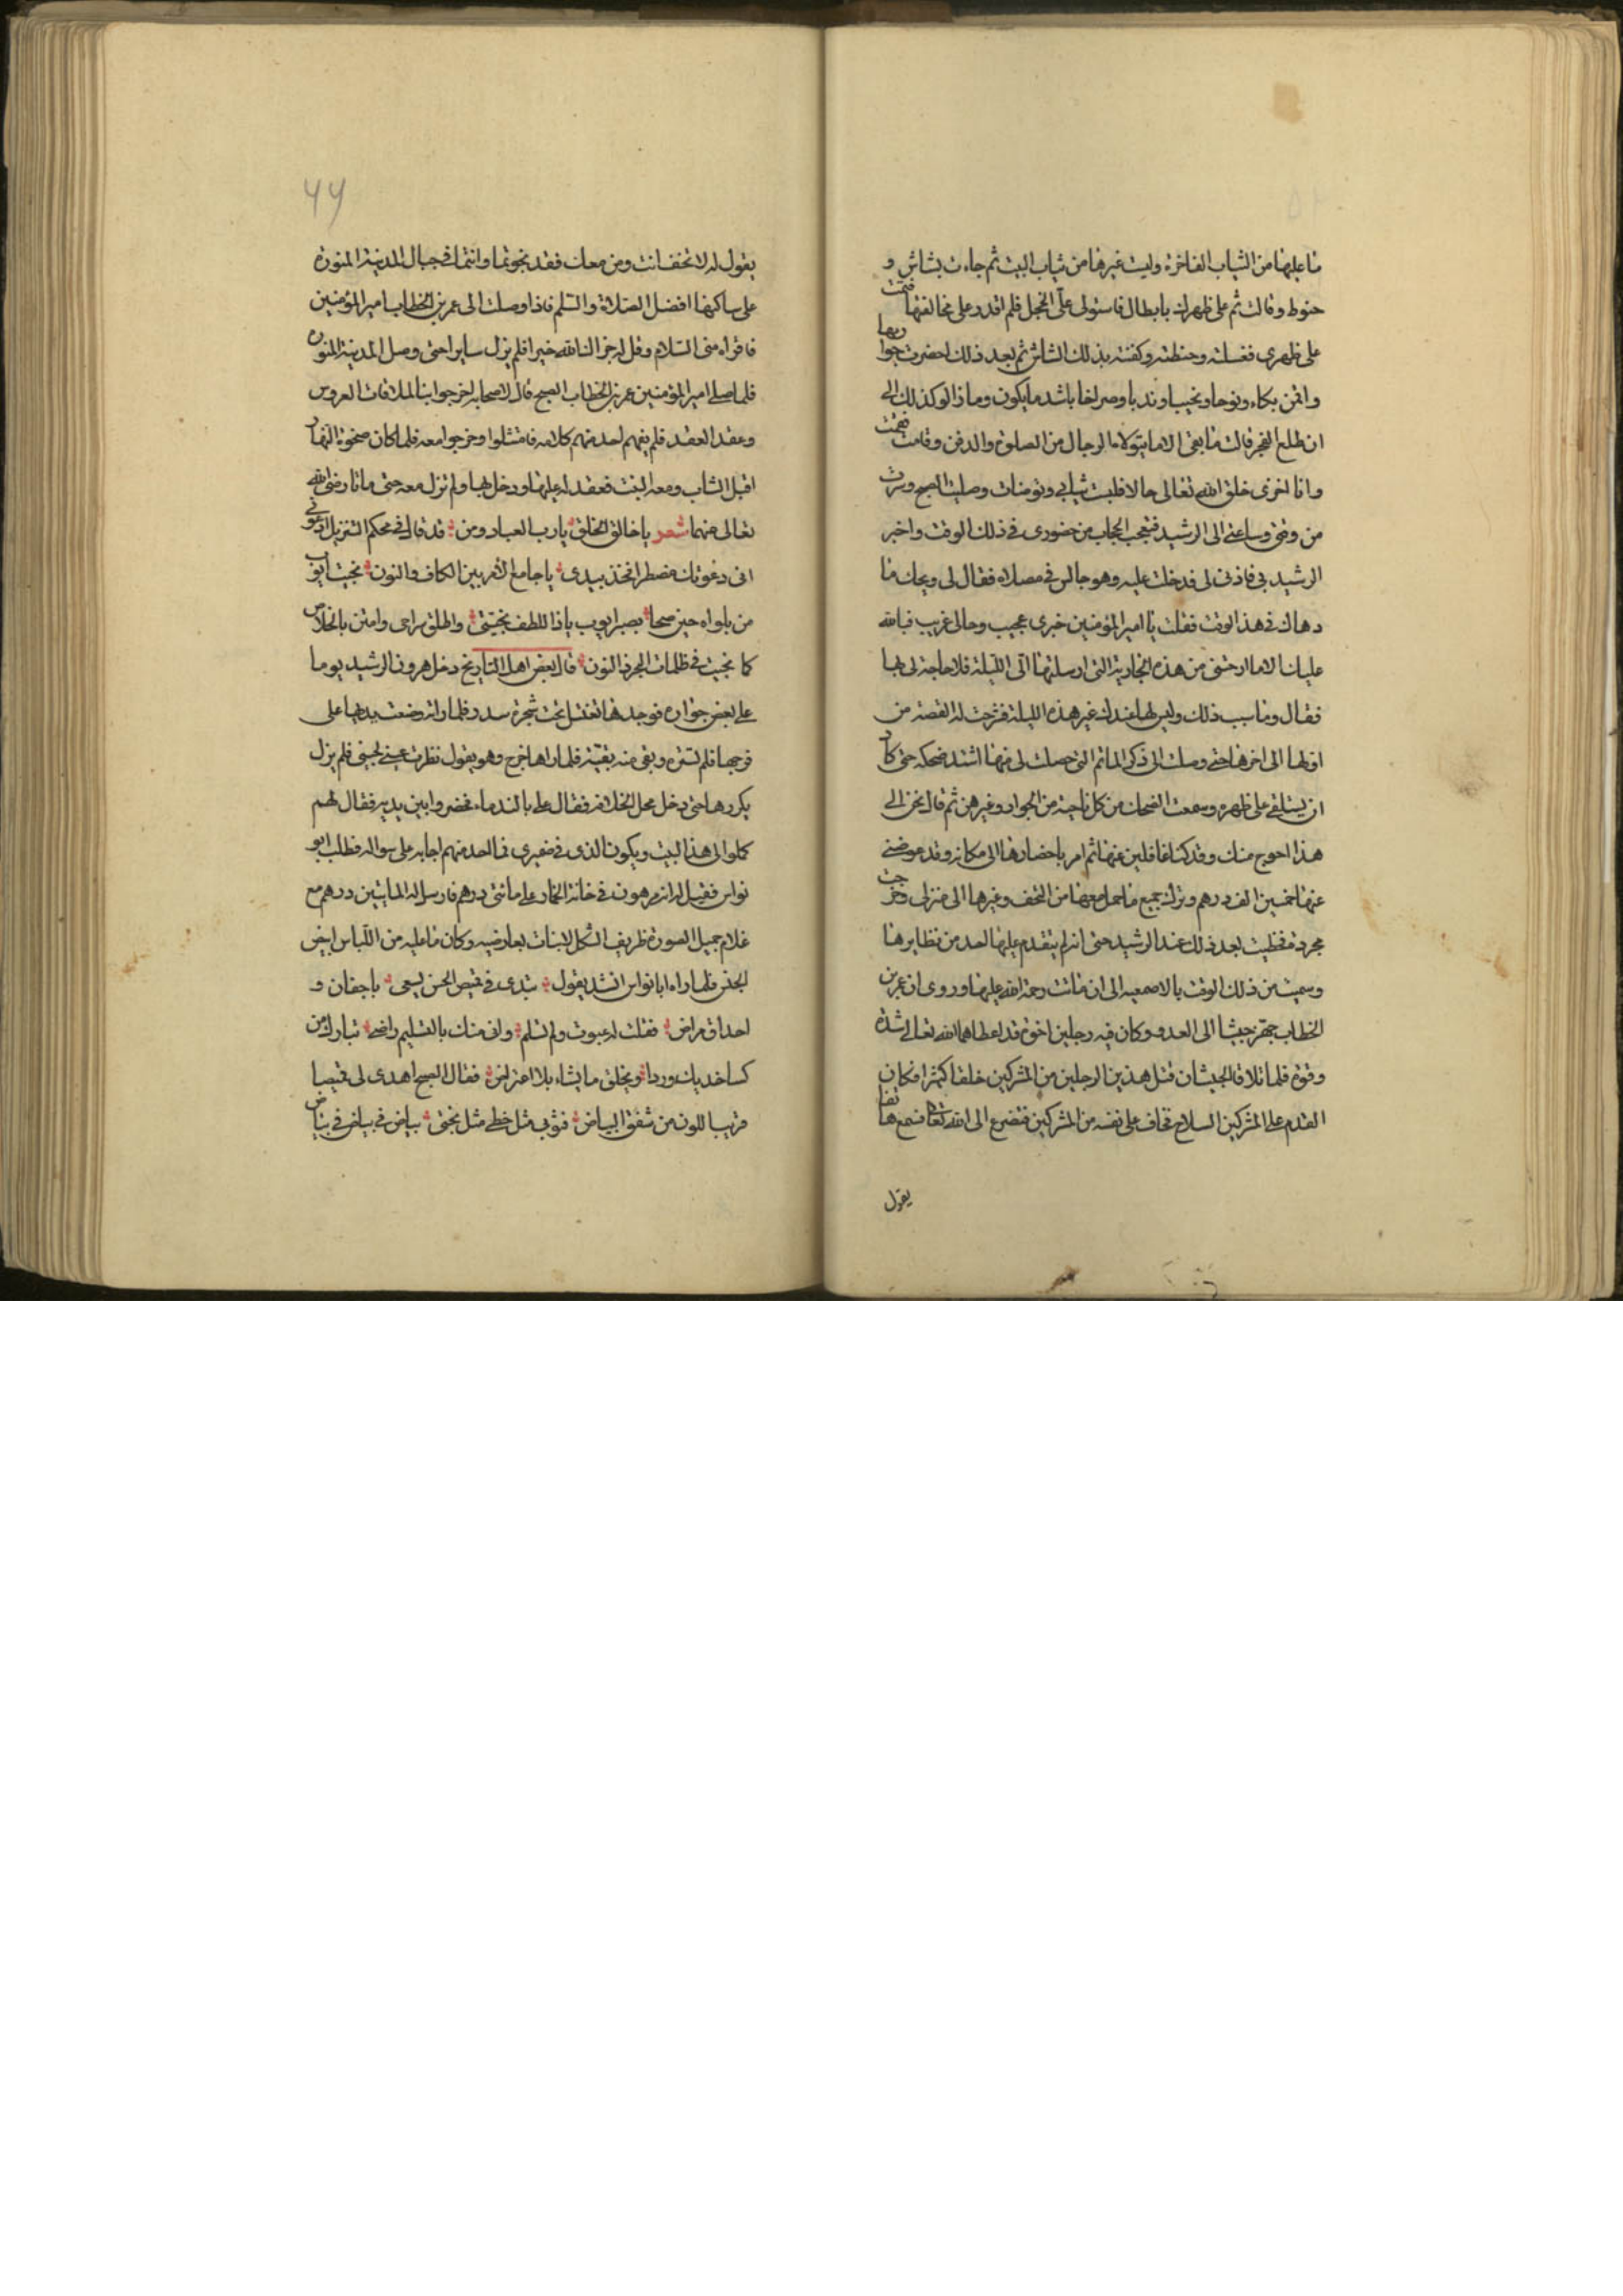 ما عليها من الثياب الفاخرة ولبست غيرها من ثياب البيت ثم جاءت بشاش و
حنوط وقالت نم على ظهرك يا بطال فاستولى علىّ الخجل فلم اقدر على مخالفتها فنمت
على ظهرى فغسلته وحنطته وكفنته بذلك الشاش ثم بعد ذلك احضرت جواريها
واقمن بكاء ونوحا ونحيبا وندبا وصراخا باشد ما يكون وما زالوا كذلك الى
ان طلع الفجر قالت ما بقى الا ما يتولاه الرجال من الصلوة والدفن وقامت فقمت
وانا اخزى خلق الله تعالى حالا فلبست ثيابى وتوضات وصليت الصبح وسرت
من وقتى وساعتى الى الرشيد فتعجب الحجاب من حضورى فى ذلك الوقت واخبر
الرشيد بى فاذن لى فدخلت عليه وهو جالس فى مصلاه فقال لى ويحك ما
دهاك فى هذا الوقت فقلت يا امير المؤمنين خبرى عجيب وحالى غريب فبالله
عليك الا ما ارحتنى من هذه الجارية التى ارسلتها الىّ الليلة فلا حاجة لى بها
فقال وما سبب ذلك وليس لها عندك غير هذه الليلة فشرحت له القصة من
اولها الى اخرها حتى وصلت الى ذكر الماتم التى حصلت لى منها اشتد ضحكه حتى كاد
ان يستلقى على ظهره وسمعت الضحك من كل ناحية من الجوار وغيرهن ثم قال نحن الى
هذا احوج منك وقد كنا غافلين عنها ثم امر باحضارها الى مكانه وقد عوضنى
عنها خمسين الف درهم وترك جميع ما حمل معها من التحف وغيرها الى منزلى وخرجت
مجردة فحظيت بعد ذلك عند الرشيد حتى انه لم يتقدم عليها احد من نظايرها
وسميت من ذلك الوقت بالاصمعيه الى ان ماتت رحمة الله عليها وروى ان عمر بن
الخطاب جهز جيشا الى العدو وكان فيه رجلين اخوة قد اعطاهما الله تعالى شدة
وقوة فلما تلاقا الجيشان قتل هذين الرجلين من المشركين خلقا كثيرا فكان
القدم على المشركين السلاح فخاف على نفسه من المشركين فتضرع الى الله تعالى فسمع هاتفا
يقول
٤٩
يقول له لا تخف انت ومن معك فقد نجوتما وانتما فى جبال المدينة المنورة
على ساكنها افضل الصلاة والسلم فاذا وصلت الى عمر بن الخطاب امير المؤمنين
فاقراه منى السلام وقل له جزاك الله خيرا فلم يزل سايرا حتى وصل المدينة المنورة
فلما صلى امير المؤمنين عمر بن الخطاب الصبح قال لاصحابه اخرجوا بنا لملاقات العروس
وعقد العقد فلم يفهم احد منهم كلامه فامتثلوا وخرجوا معه فلما كان ضحوة النهار
اقبل الشاب ومعه البنت فعقد له عليها ودخل بها ولم تزل معه حتى ماتا رضى الله
تعالى عنهما شعر يا خالق الخلق يا رب العباد ومن قد قال فى محكم التنزيل ادعونى
انى دعوتك مضطرا فخذ بيدى يا جامع الامر بين الكاف والنون نجيت ايوب
من بلواه حين صحا بصبر ايوب يا ذا اللطف نجيتنى واطلق سراحى وامنن بالخلاص
كما نجيت فى ظلمات البحر ذا النون قال بعض اهل التاريخ دخل هرون الرشيد يوما
على بعض جواره فوجدها تغتسل تحت شجرة سدر فلما راته وضعت يديها على
فرجها فلم تستره وبقى منه بقية فلما راها خرج وهو يقول نظرت عينى لحينى فلم يزل
يكررها حتى دخل محل الخلافه فقال على بالندماء فحضروا بين يديه فقال لهم
كملوا لى هذا البيت ويكون الذى فى ضميرى فما احد منهم اجابه على سواله فطلب ابو
نواس فقيل له انه مرهون فى خانة الخمار على مائتى درهم فارسل له المايتين درهم مع
غلام جميل الصورة ظريف الشكل لا نبات بعارضيه وكان ما عليه من اللباس ابيض
الجنس فلما راه ابا نواس انشد يقول تبدى فى قميص الحسن يسعى باجفان و
احداق مراض فقلت له عبرت ولم تسلم وانى منك بالتسليم راضى تبارك من
كسا خديك وردا ويخلق ما يشاء بلا اعتراض فقال الصبح اهدى لى قميصا
قريب اللون من شفق البياض فثوبى مثل خطى مثل بختى بياض فى بياض فى بياض